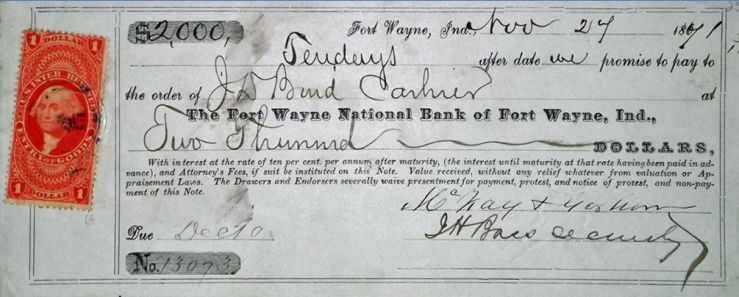 1 DOLLAR. 1
U.S. INTER. REVENUE
ENTRY OF GOODS.
1 DOLLAR 1
$2,000, Fort Wayne, Ind., Nov 27 1871
Ten days after date we promise to pay to
the order of J D Bond Cashier at
The Fort Wayne National Bank of Fort Wayne, Ind.,
Two Thousand DOLLARS,
With interest at the rate of ten per cent. per annum after maturity, (the interest until maturity at that rate having been paid in ad-
vance), and Attorney's Fees, if suit be instituted on this Note. Value received, without any relief whatever from valuation or Ap-
praisement Laws. The Drawers and Endorsers severally waive presentment for payment, protest, and notice of protest, and non-pay-
ment of this Note.
McKay &
Due Dec 10 J H Bass security
No. 13073